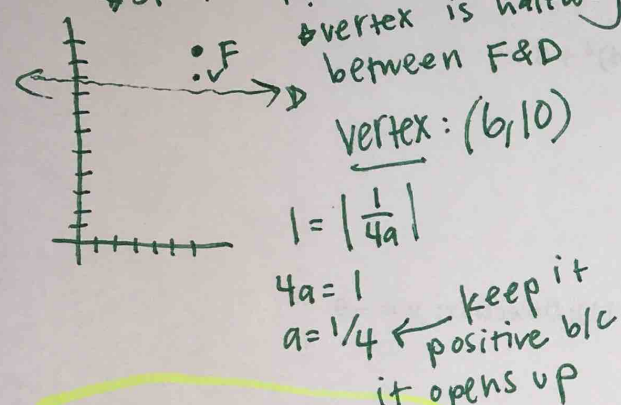 vertex is
between F&D
vertex: (6,10)
F
V
D
1 = |1/4a|
4a = 1
a = 1/4 ← keep it
positive b/c
it opens up